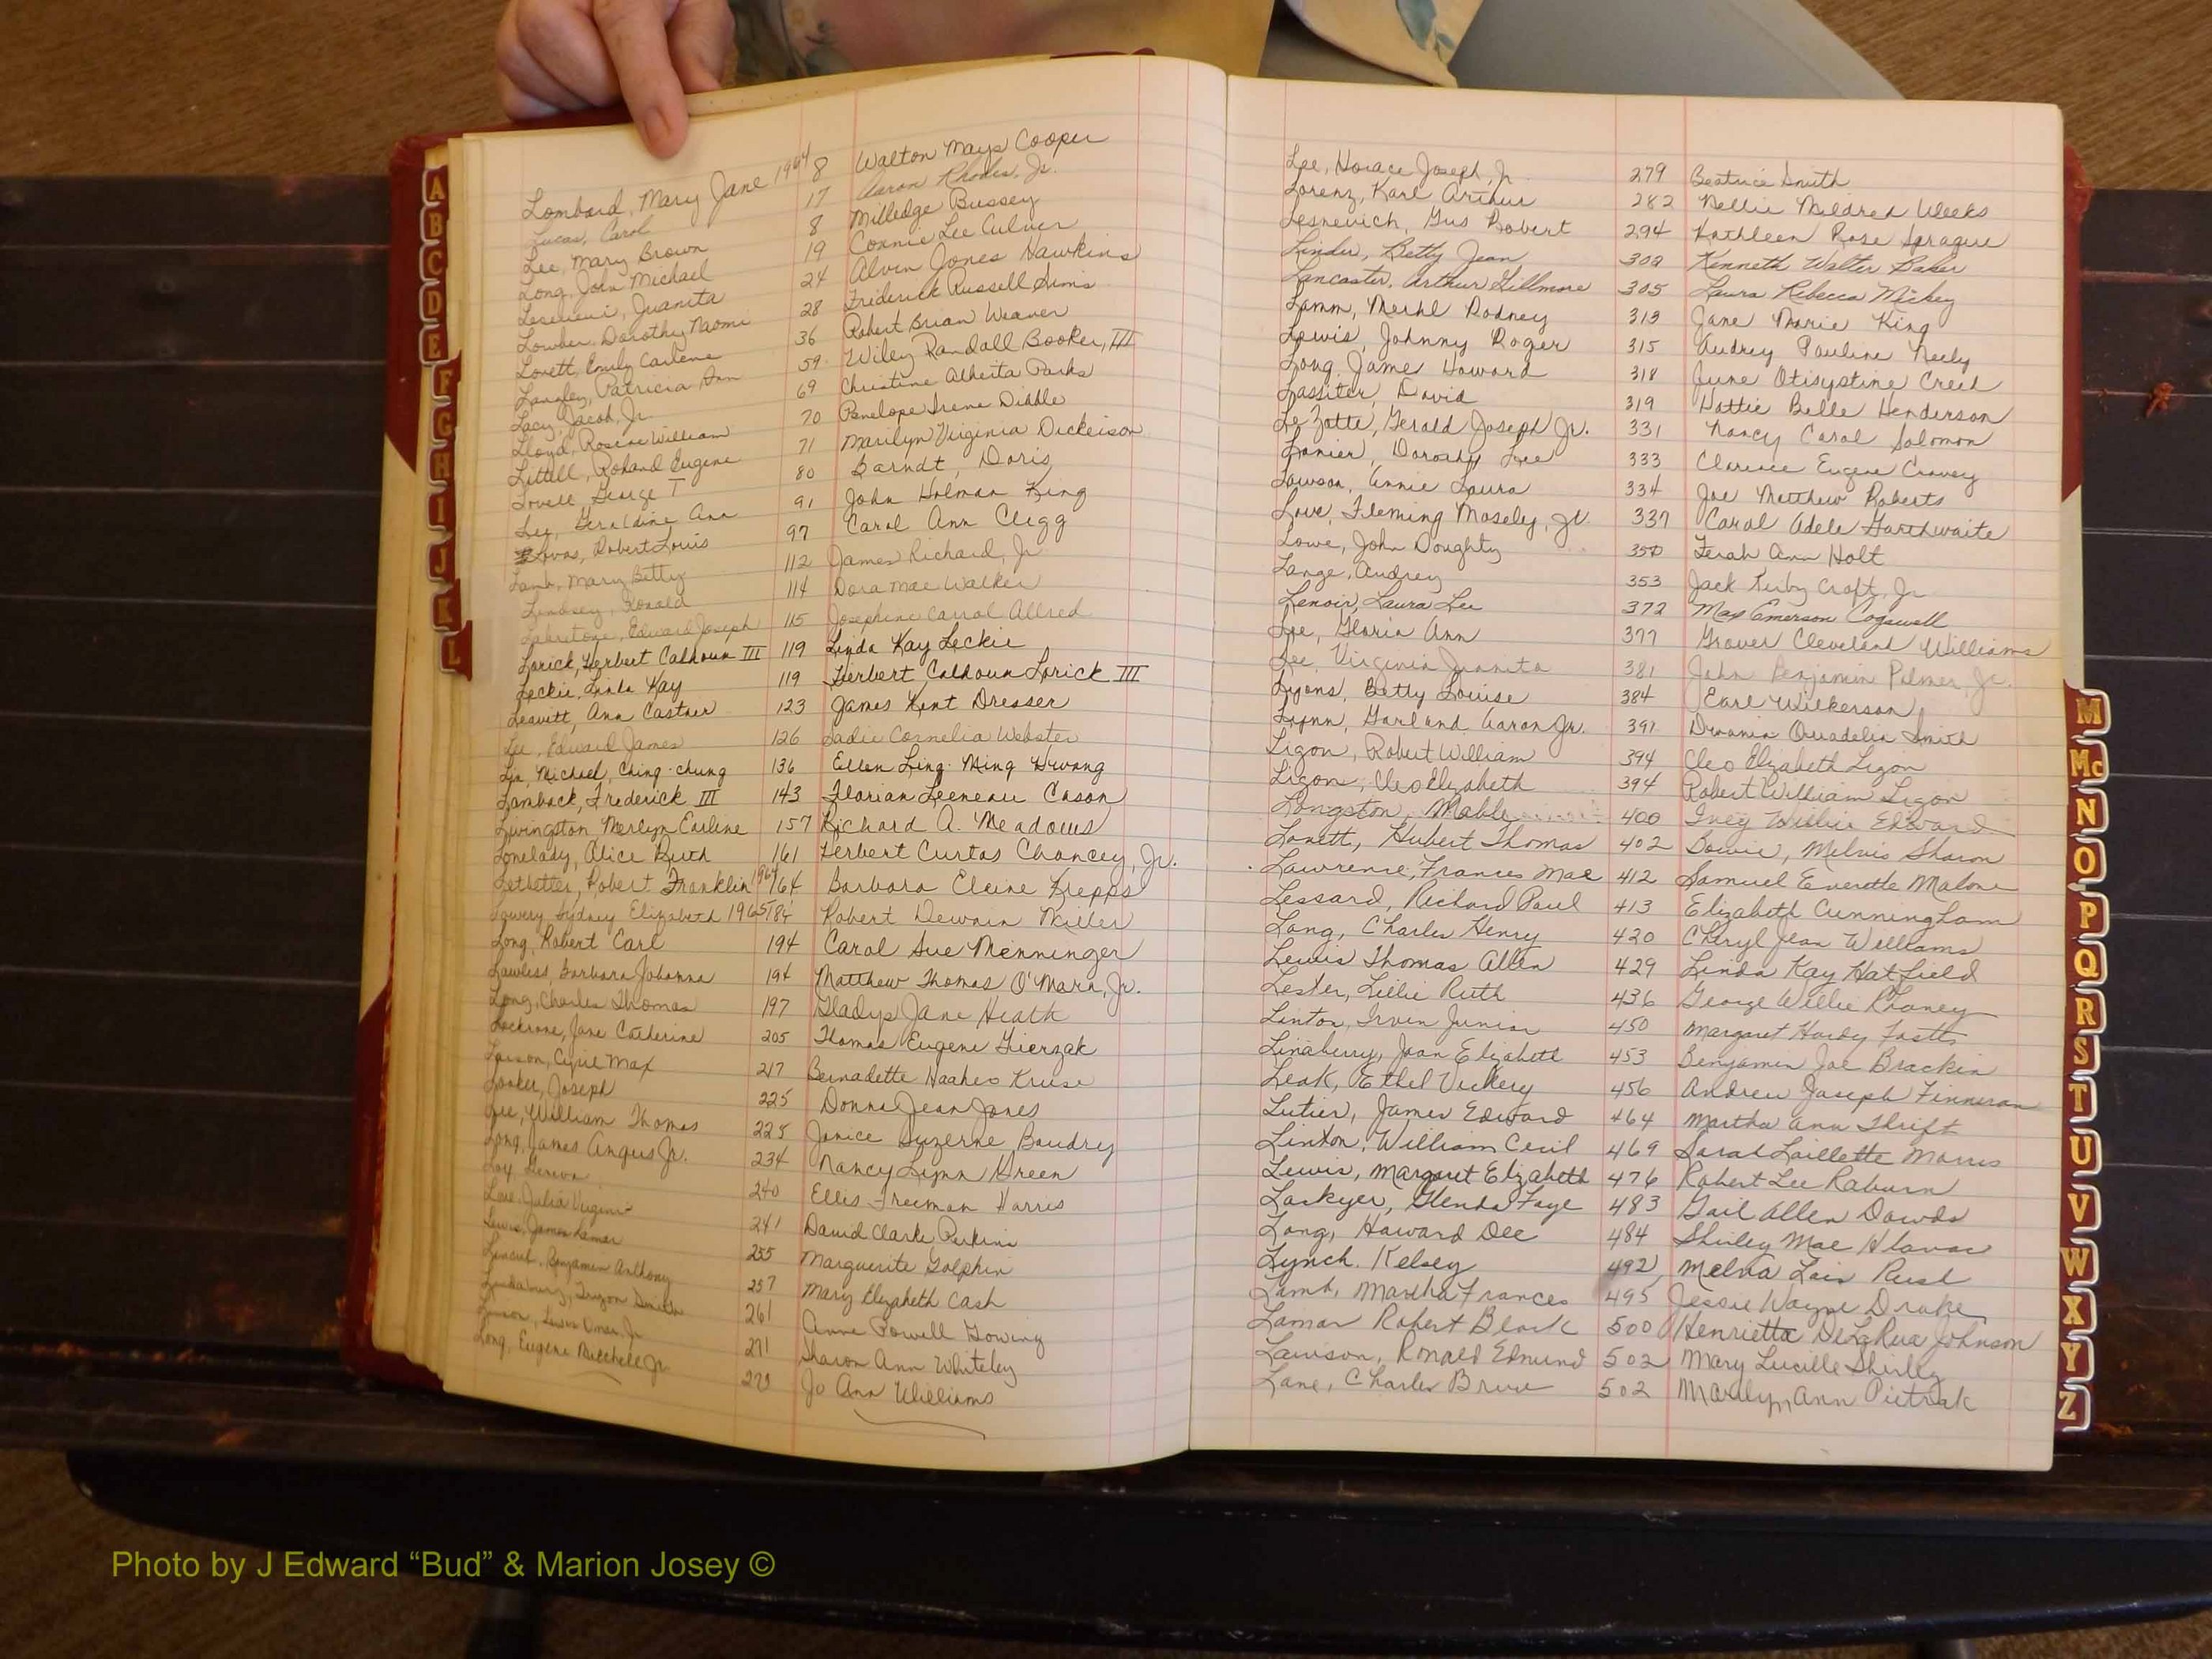 A
B
C
D
E
F
G
H
I
J
K
L
Lombard, Mary Jane 1964 8 Walton Mays Cooper
Lucas, Carol 17 Aaron Rhodes, Jr.
Lee, Mary Brown 8 Milledge Bussey
Long, John Michael 19 Connie Lee Culver
Juanita 24 Alvin Jones Hawkins
Lowber, Dorothy Naomi 28 Frederick Russell Sims
Lovett, Emily Carlene 36 Robert Brian Weaver
Langley, Patricia Ann 59 Wiley Randall Booker, III
Lacy, Jacob, Jr. 69 Christine Alberta Parks
Lloyd, Roscoe William 70 Penelope Irene Diddle
Littell, Roland Eugene 71 Marilyn Virginia Dickerson
Lovell, George T 80 Barndt, Doris
Lee, Geraldine Ann 91 John Holman King
Lovas, Robert Louis 97 Carol Ann Clegg
Lamb, Mary Betty 112 James Richard, Jr
Lindsey, Ronald 114 Dora Mae Walker
Edward Joseph 115 Josephine Carrol Allred
Lorick, Herbert Calhoun III 119 Linda Kay Leckie
Leckie, Linda Kay 119 Herbert Calhoun Lorick III
Lesvitt, Ann Castner 123 James Kent Dresser
Lee, Edward James 126 Sadie Cornelia Webster
Lin, Michael, Ching-chung 136 Ellen Ling-Ming Hwang
Lamback, Frederick III 143 Florian Leeneau Cason
Livingston, Merlyn Earline 157 Richard A. Meadows
Lonelady, Alice Ruth 161 Herbert Curtas Chancey, Jr.
Letbetter, Robert Franklin 1964 164 Barbara Elaine Krepps
Lowery, Sydney Elizabeth 1965 184 Robert Dewain Miller
Long, Robert Carl 194 Carol Sue Menninger
Lawless, Barbara Johanna 194 Matthew Thomas O'Mara, Jr.
Long, Charles Thomas 197 Gladys Jane Heath
Lockrone, Jane Catherine 205 Thomas Eugene Gierzak
Larson, Cyril Max 217 Bernadette Naaheo Kruse
Looker, Joseph 225 Donna Jean Jones
Lee, William Thomas 225 Janice Suzerne Baudry
Long, James Angus Jr. 234 Nancy Lynn Green
Loy, Geneva 240 Ellis Freeman Harris
Love, Julia Virginia 241 David Clarke Perkins
Lewis, James Lamar 255 Marguerite Golphin
Benjamin Anthony 257 Mary Elizabeth Cash
261 Anne Powell Gowing
271 Sharon Ann Whiteley
Long, Eugene Mitchell Jr 273 Jo Ann Williams
Lee, Horace Joseph, Jr. 279 Beatrice Smith
Lorenz, Karl Arthur 282 Nellie Mildred Weeks
Lesnevich, Gus Robert 294 Kathleen Rose Sprague
Linder, Betty Jean 302 Kenneth Walter Baker
Lancaster, Arthur Gillmore 305 Laura Rebecca Mickey
Lamm, Merhl Rodney 313 Jane Marie King
Lewis, Johnny Roger 315 Audrey Pauline Neely
Long, James Howard 318 June Otisystine Creed
Lassiter, David 319 Hattie Belle Henderson
LeZotte, Gerald Joseph Jr. 331 Nancy Carol Solomon
Lanier, Dorothy Lee 333 Clarence Eugene Cravey
Lawson, Annie Laura 334 Joe Matthew Roberts
Love, Fleming Mosely, Jr. 337 Carol Adele Garthwaite
Lowe, John Doughty 350 Ferah Ann Holt
Lange, Audrey 353 Jack Kirby Croft, Jr
Lenoir, Laura Lee 372 Max Emerson Cogswell
Lee, Gloria Ann 377 Grover Cleveland Williams
Lee, Virginia Juanita 381 John Benjamin Palmer, Jr.
Lyons, Betty Louise 384 Earl Wilkerson
Lynn, Garland Aaron Jr. 391 Drwania Quadelia Smith
Ligon, Robert William 394 Cleo Elizabeth Ligon
Ligon, Cleo Elizabeth 394 Robert William Ligon
Longston, Mable 400 Ivey Willie Edward
Lovett, Hubert Thomas 402 Bowie, Melvis Sharon
Lawrence, Frances Mae 412 Samuel Everette Malone
Lessard, Richard Paul 413 Elizabeth Cunningham
Long, Charles Henry 420 Cheryl Jean Williams
Lewis Thomas Allen 429 Linda Kay Hatfield
Lester, Lillie Ruth 436 George Willie Rhaney
Linton, Irvin Junior 450 Margaret Hardy Fostts
Linaberry, Joan Elizabeth 453 Benjamin Joe Brackin
Leak, Ethel Vickery 456 Andrew Joseph Finneran
Lutier, James Edward 464 Martha Ann Thrift
Linton, William Cecil 469 Sarah Laillette Morris
Lewis, Margaret Elizabeth 476 Robert Lee Raburn
Lockyer, Glenda Faye 483 Gail Allen Dowds
Long, Howard Dee 484 Shirley Mae Hlavac
Lynch, Kelsey 492 Melva Lois Rush
Lamb, Martha Frances 495 Jessie Wayne Drake
Lamar Robert Black 500 Henrietta DeLaRua Johnson
Lawson, Ronald Edmund 502 Mary Lucille Shirley
Lane, Charles Bruce 502 Marilyn Ann Pietrzak
M
Mc
N
O
P
Q
R
S
T
U
V
W
X
Y
Z
Photo by J Edward “Bud” & Marion Josey ©